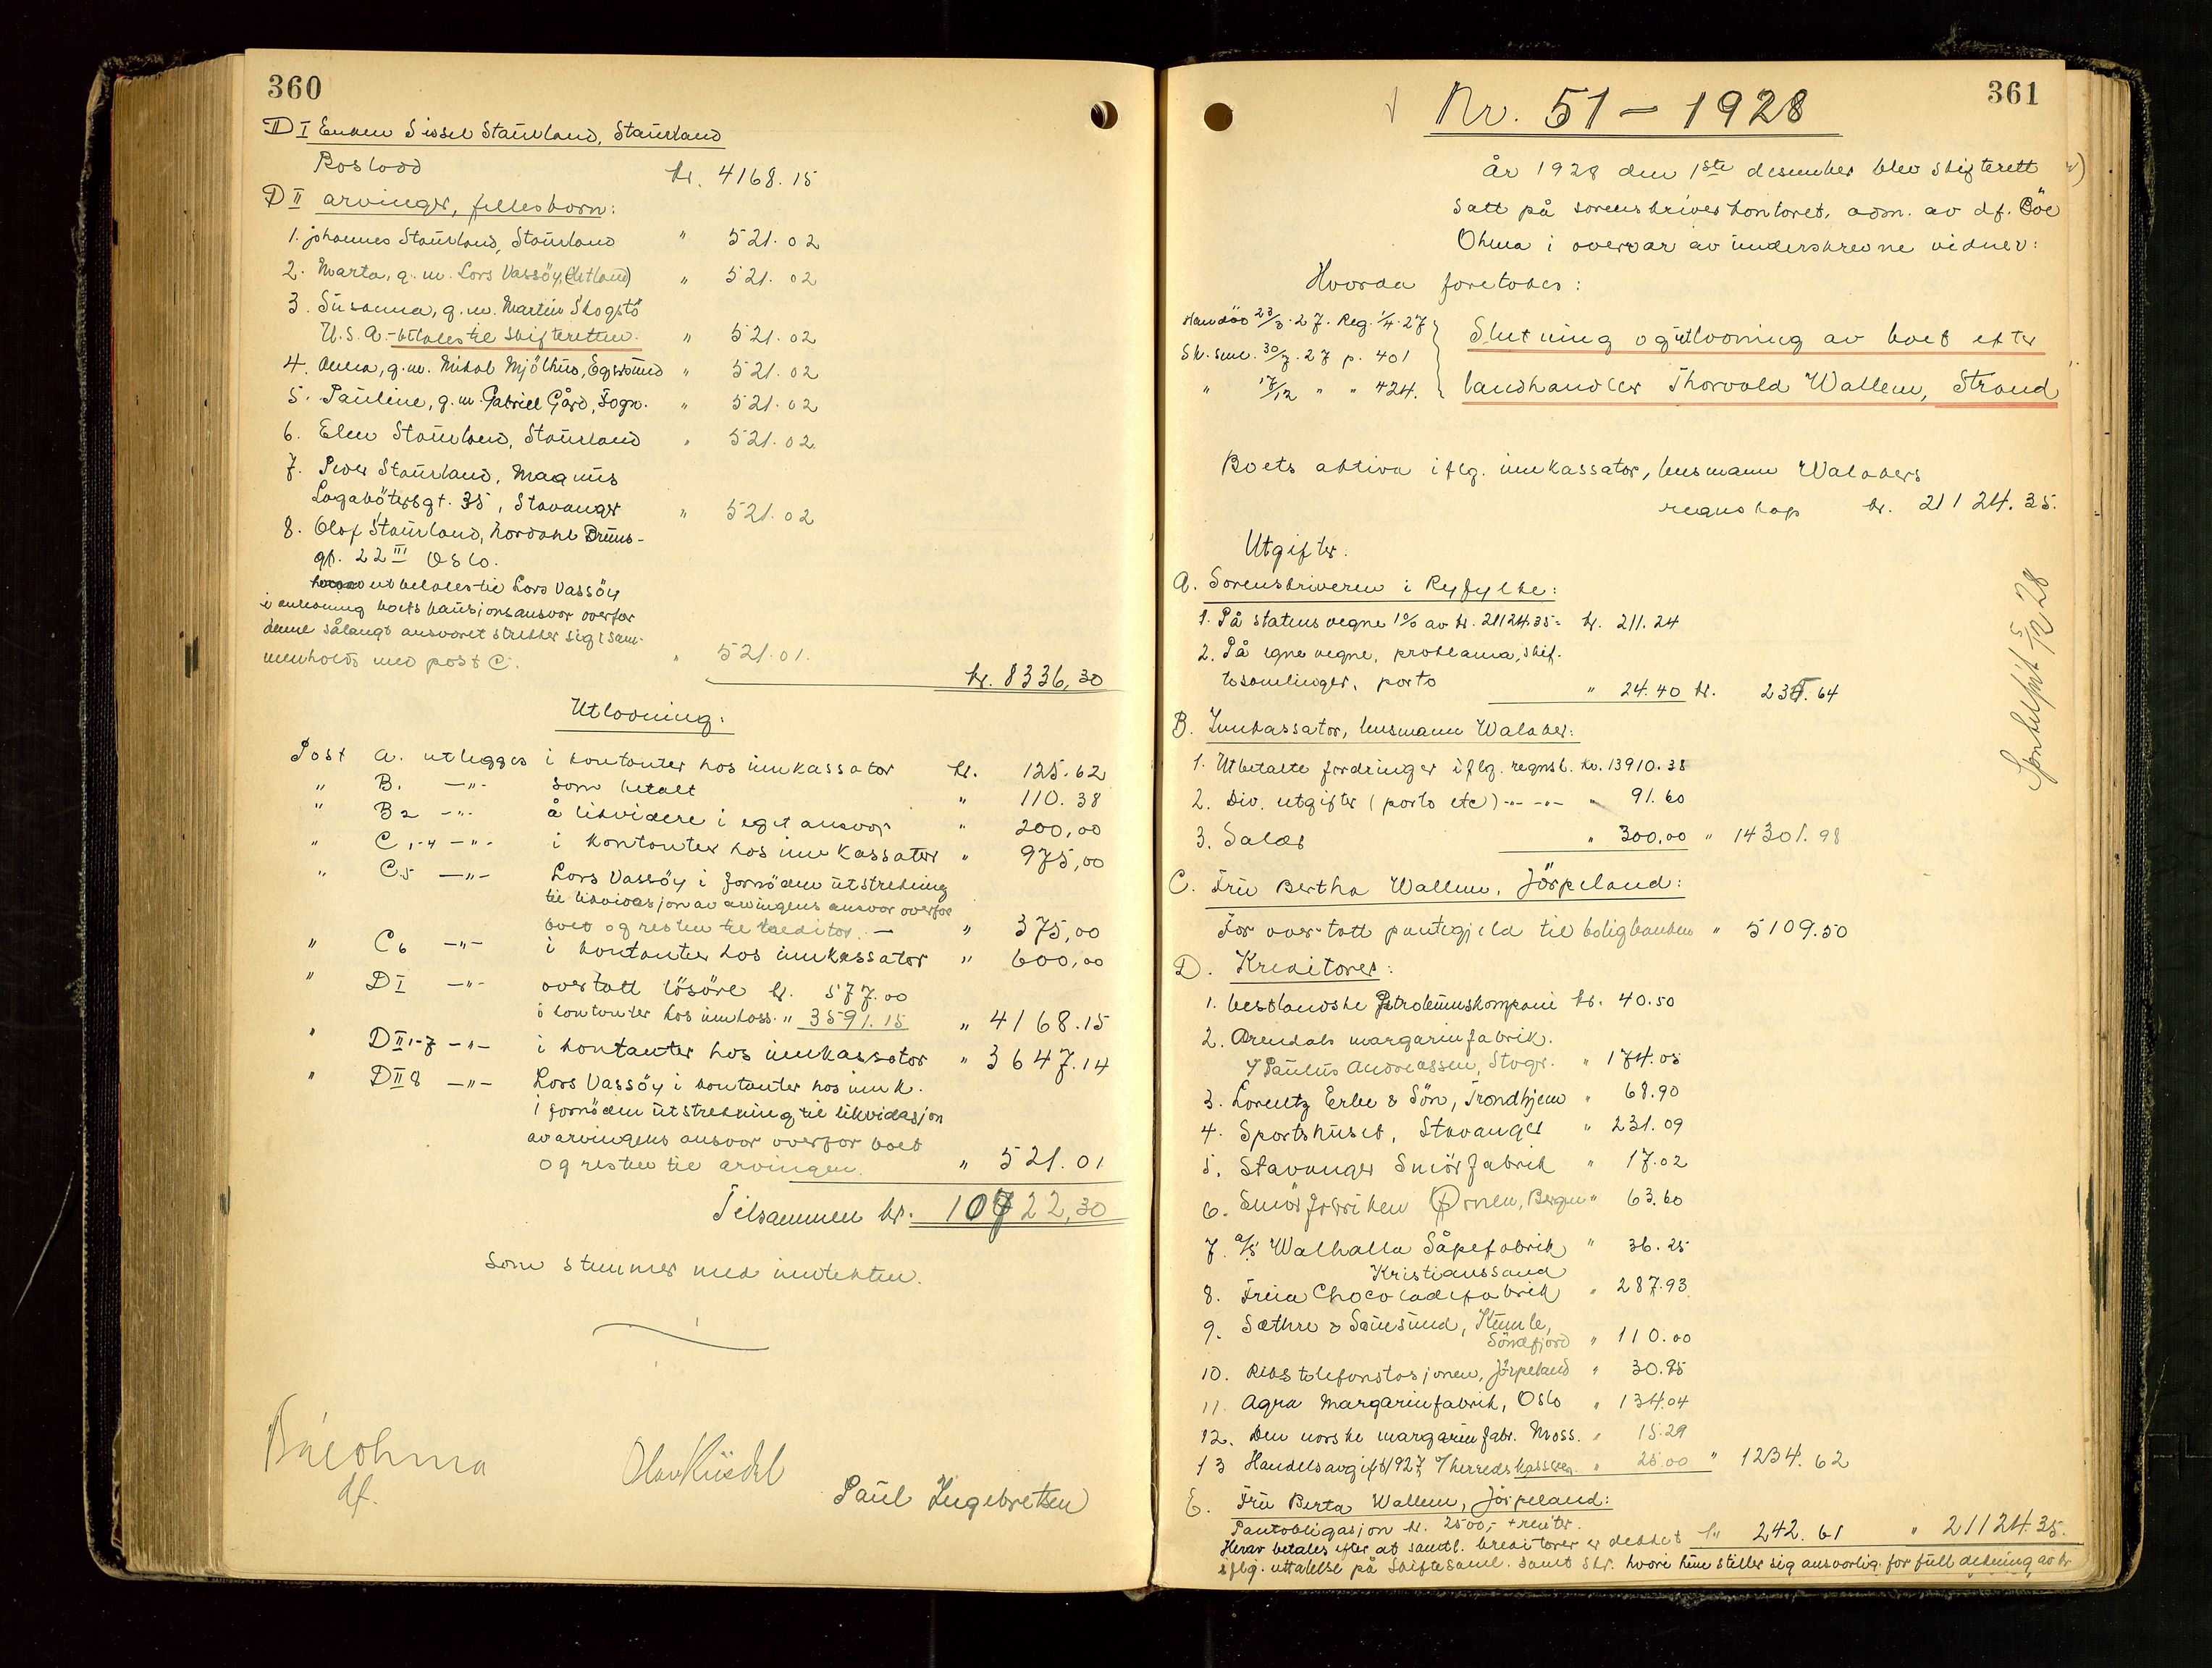 360
D I Enken Sissel Staurland, Staurland
Boslodd kr. 4168.15
D II arvinger, fellesborn:
1. Johannes Staurland, Staurland " 521.02
2. Marta, g.m. Lars Vassöy, (Hetland) " 521.02
3. Susanna, g.m. Martin Skogstö
U.S.A. - betales til skifteretten. " 521.02
4. Anna, g.m. Mikal Mjölhus, Egersund " 521.02
5. Pauline, g.m. Gabriel Gård, Sogn. " 521.02
6. Elen Staurland, Staurland " 521.02
7. Peder Staurland, Magnus
Lagabötersgt. 35, Stavanger " 521.02
8. Olaf Staurland, Nordahl Bruns-
gt. 22 III Oslo.
utbetales til Lars Vassöy
i anledning boets kausjonsansvar overfor
denne sålangt ansvaret strekker sig i sam-
menhold med post C. " 521.01.
kr. 8336,30
Utlodning:
Post A. utlegges i kontanter hos innkassator kr. 125.62
" B1 —"— som betalt " 110.38
" B2 —"— å likvidere i eget ansvar " 200,00
" C1-4 —"— i kontanter hos innkassator " 975,00
" C5 —"— Lars Vassöy i fornöden utstrekning
til likvidasjon av arvingens ansvar overfor
boet og resten til kreditor. — " 375,00
" C6 —"— i kontanter hos innkassator " 600,00
" D I —"— overtatt lösöre kr. 577.00
i kontanter hos innkass. " 3591.15 " 4168.15
" D II 1-7 —"— i kontanter hos innkassator " 3647.14
" D II 8 —"— Lars Vassöy i kontanter hos innk.
i fornöden utstrekning til likvidasjon
av arvingens ansvar overfor boet
og resten til arvingen. " 521.01
Tilsammen kr. 10722,30
som stemmer med inntekten.
Böe Ohma
df.
Olav Küsdal
Paul Ingebretsen
361
Nr. 51 – 1928
År 1928 den 1ste desember blev skifterett
satt på sorenskriverkontoret, adm. av df. Böe
Ohma i overvær av underskrevne vidner:
Hvorda foretokes:
Han död 23/3.27. Reg. 1/4.27
Sk. sml. 30/7.27 p. 401
" 17/12 " " 424.
Slutning og utlodning av boet efter
landhandler Thorvald Wallem, Strand
Boets aktiva iflg. innkassator, lensmann Walakers
regnskap kr. 21124.35.
Utgifter.
A. Sorenskriveren i Ryfylke:
1. På statens vegne 1% av kr. 21124.35 = kr. 211.24
2. På egne vegne, proklama, skif-
tesamlinger, porto " 24.40 kr. 235.64
B. Innkassator, lensmann Walaker:
1. Utbetalte fordringer iflg. regnsk. kr. 13910.38
2. Div. utgifter (porto etc) -"- -"- " 91.60
3. Salær " 300.00 " 14301.98
C. Fru Bertha Wallem, Jörpeland:
For overtatt pantegjeld til boligbanken " 5109.50
D. Kreditorer:
1. Vestlandske Petroleumskompani kr. 40.50
2. Arendals margarinfabrik.
v/ Paulus Andreassen, Stvgr. " 174.05
3. Lorentz Erbe & Sön, Trondhjem " 68.90
4. Sportshuset, Stavanger " 231.09
5. Stavanger Smörfabrik " 17.02
6. Smörfabriken Ørnen, Bergen " 63.60
7. A/S Walhalla Såpefabrik " 36.25
Kristianssand
8. Freia Chocoladefabrik " 287.93
9. Sæthre & Samsund, Kumle,
Söndfjord " 110.00
10. Rikstelefonstasjonen, Jörpeland " 30.95
11. Agra Margarinfabrik, Oslo " 134.04
12. Den norske margarinfabr. Moss. " 15.29
13 Handelsavgift 1927, v/ herredskassereren " 25.00 " 1234.62
E. Fru Berta Wallem, Jörpeland:
Pantobligasjon kr. 2500,- + renter.
Herav betales efter at samtl. kreditorer er dekket kr. 242.61 " 21124.35.
iflg. uttalelse på skiftesaml. samt skr. hvori hun stiller sig ansvarlig for full dekning av kr
5/12 28